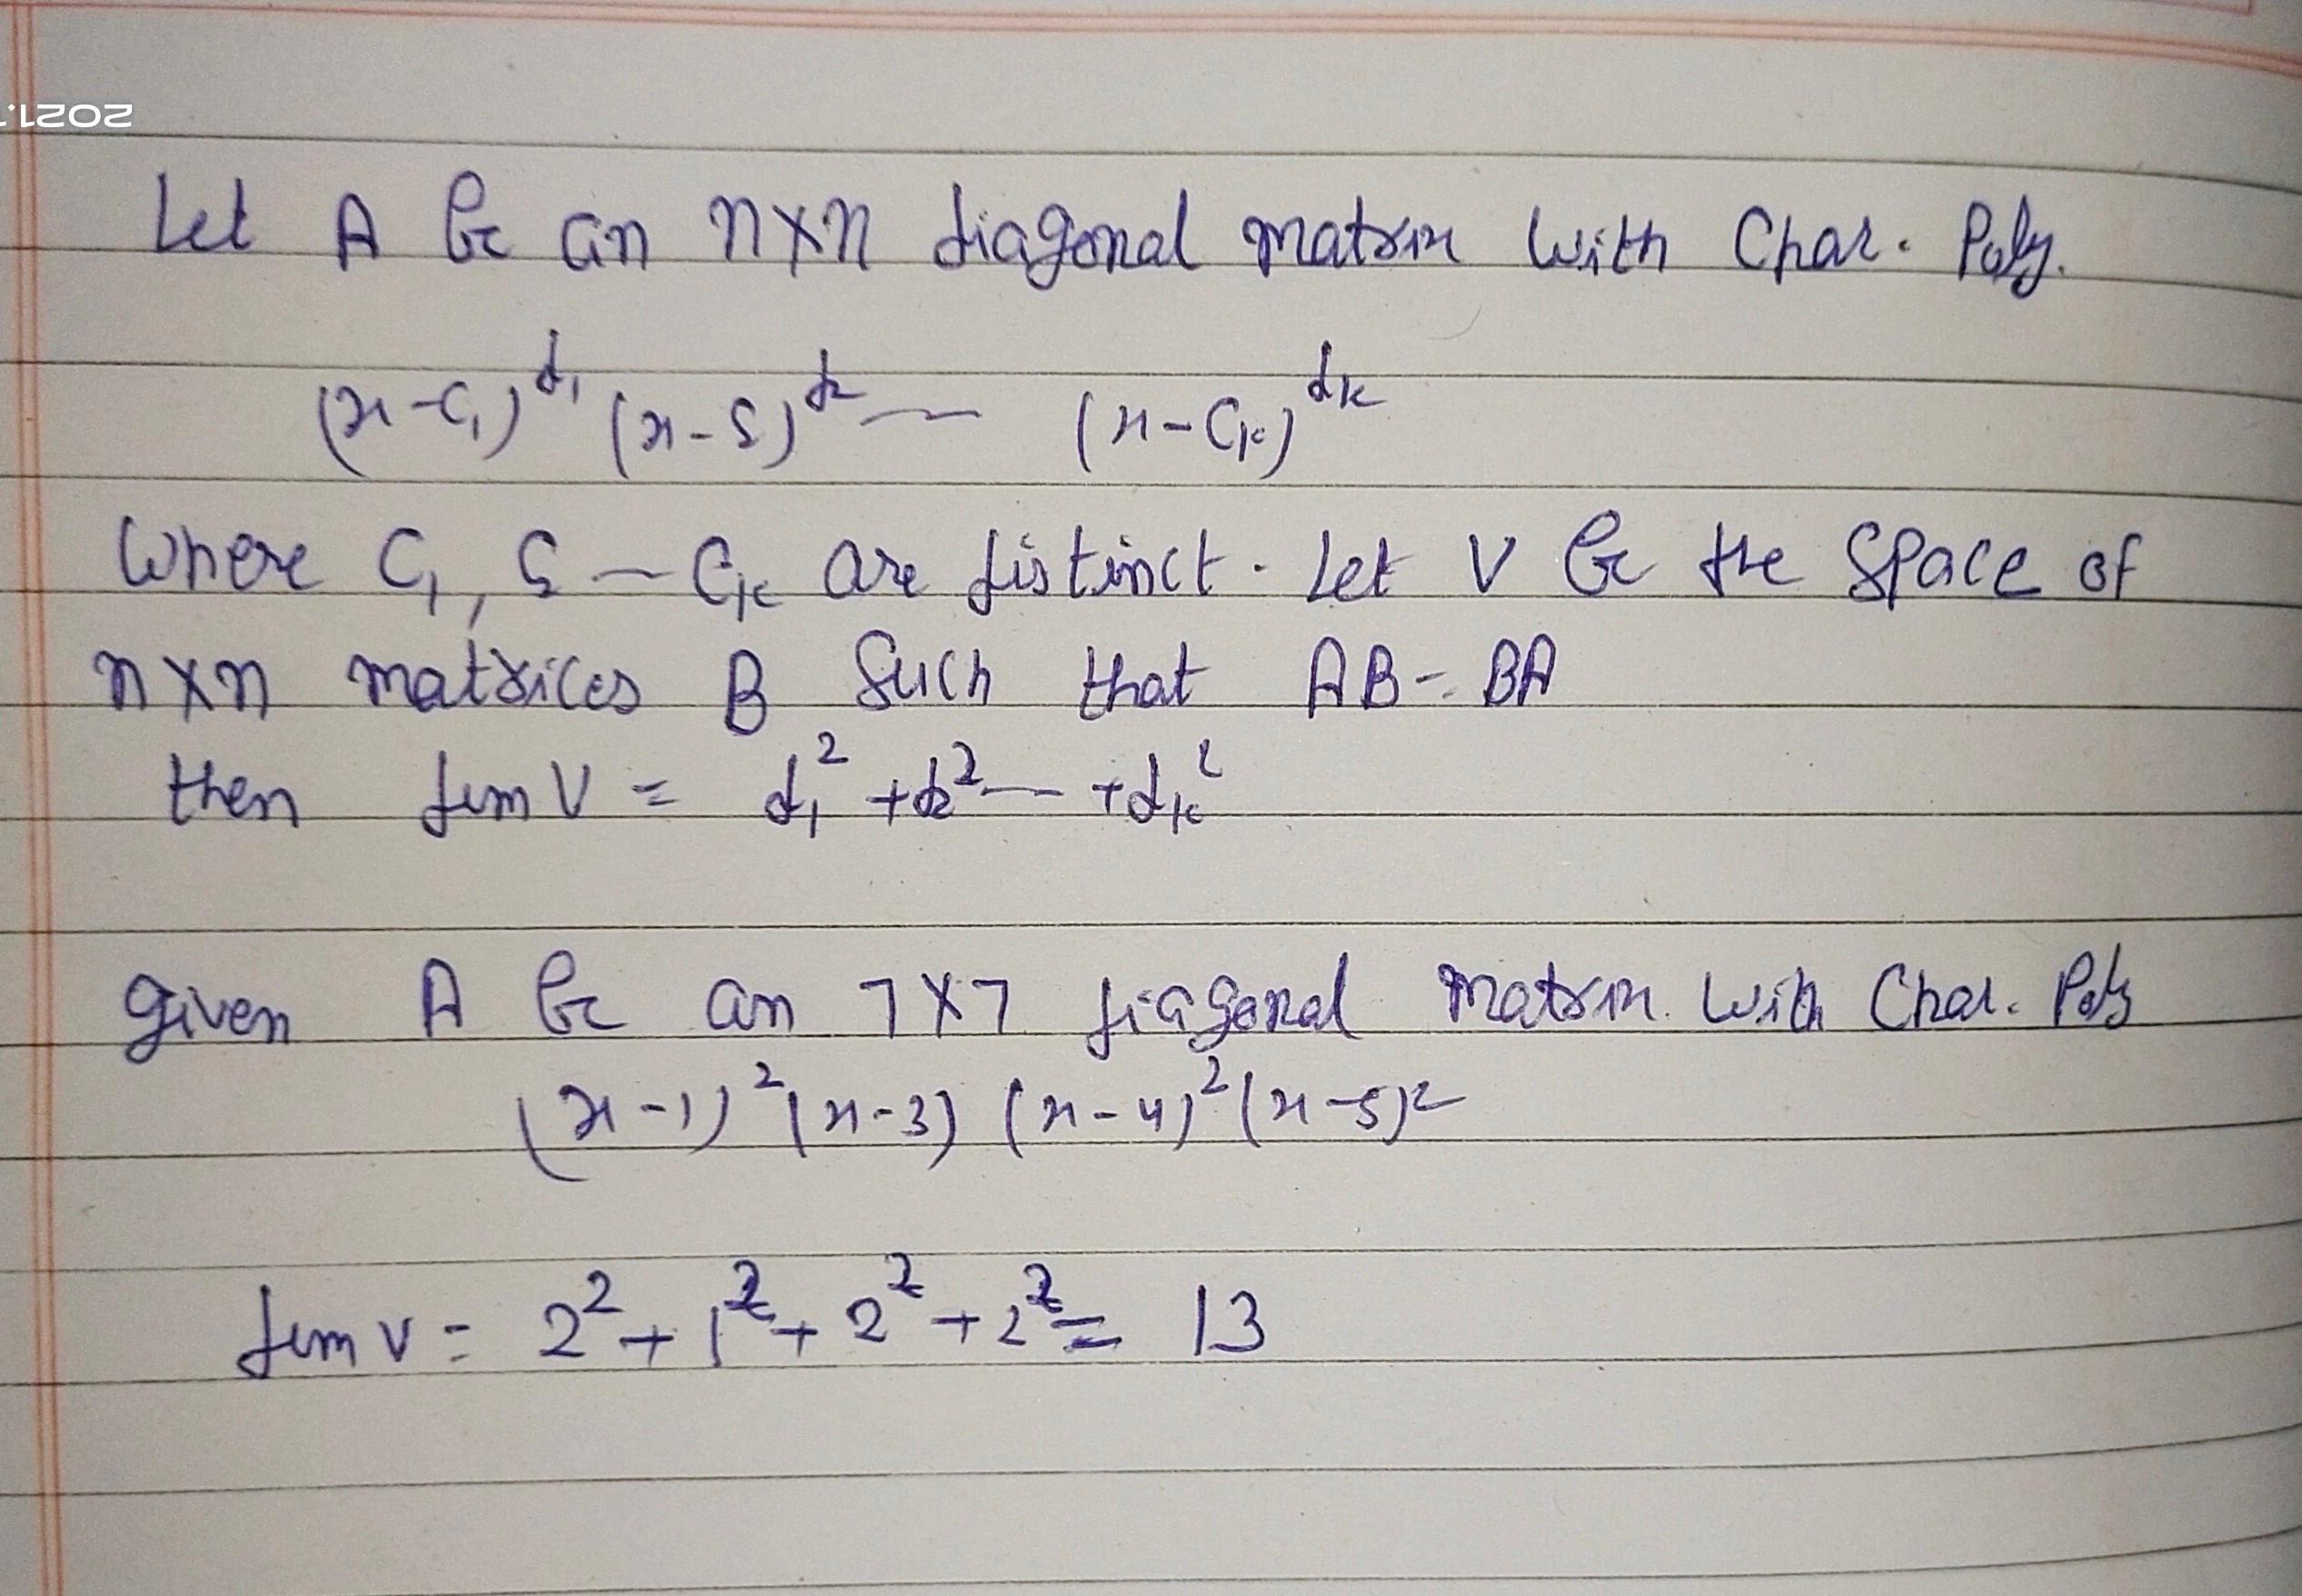 2021.
Let A be an n×n diagonal matrix with Char. Poly.
(x-C₁)^d₁ (x-C₂)^d₂ — (x-Cₖ)^dₖ
Where C₁, C₂ — Cₖ are distinct. Let V be the space of
n×n matrices B such that AB = BA
then dim V = d₁² + d₂² — + dₖ²
Given A be an 7×7 diagonal matrix with Char. Poly
(x-1)²(x-3) (x-4)²(x-5)²
dim V = 2² + 1² + 2² + 2² = 13